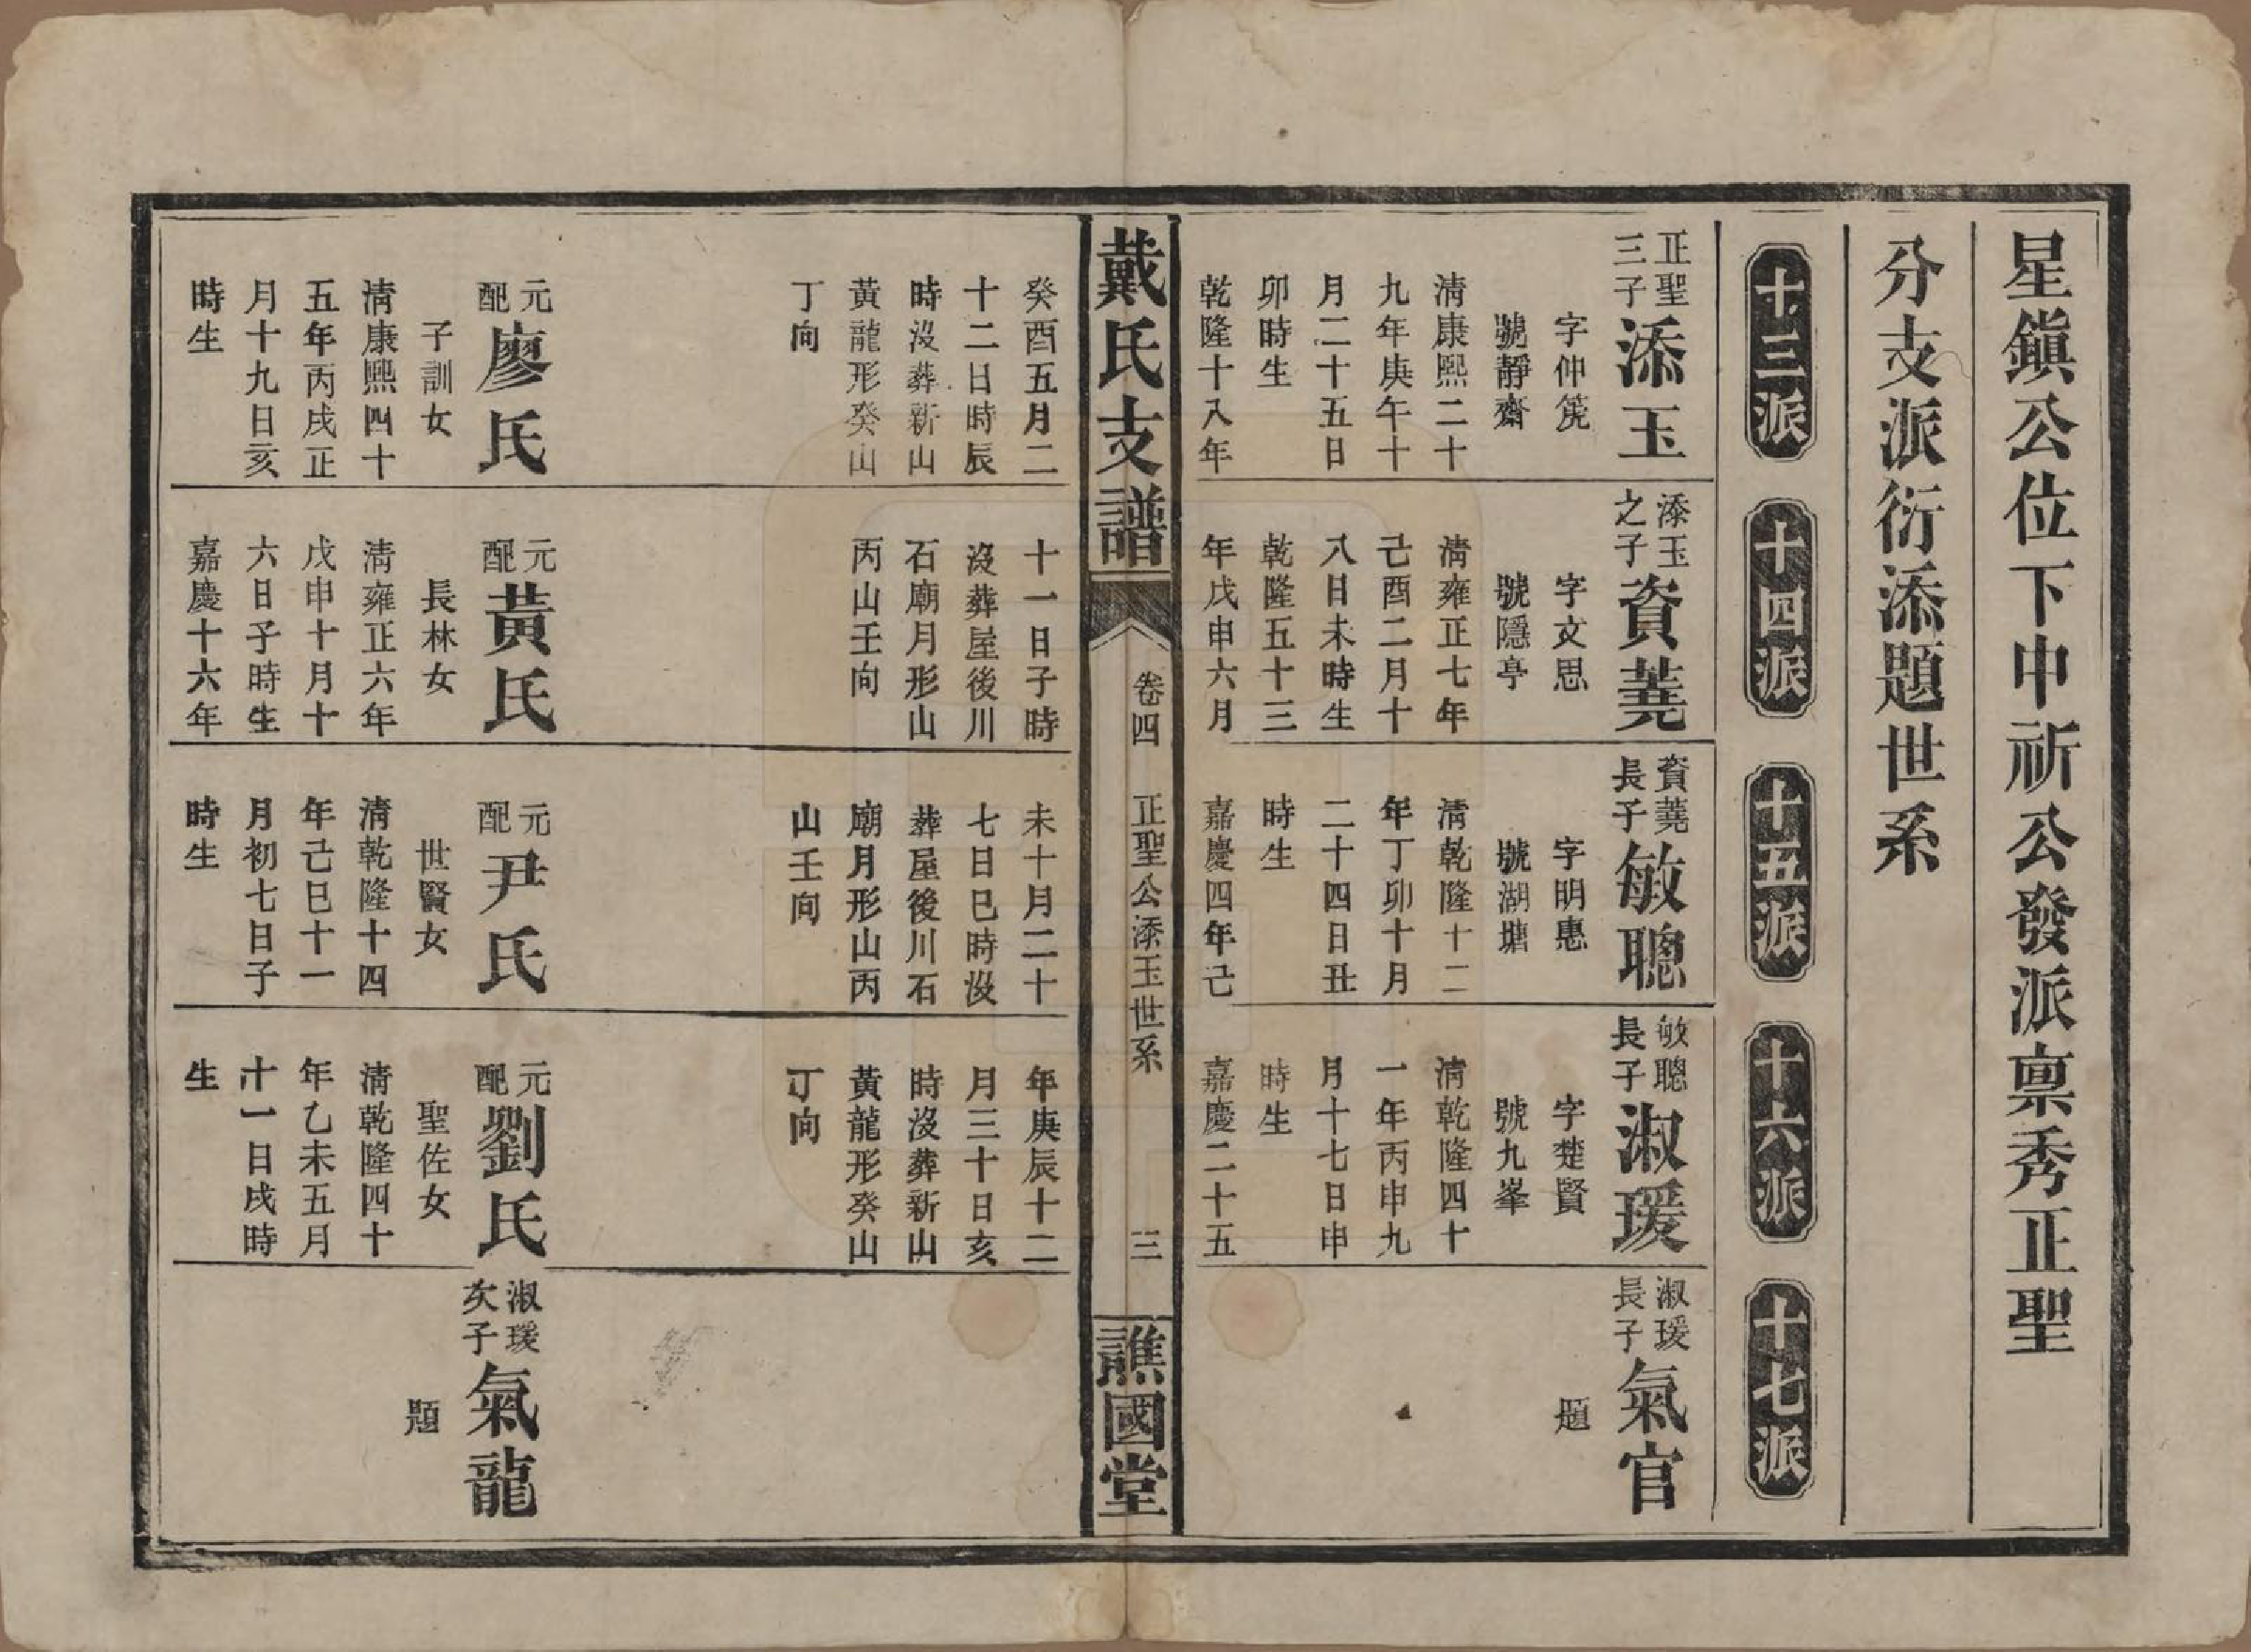 星鎮公位下申祈公發派禀秀正聖
分支派衍添題世系
十三派
十四派
十五派
十六派
十七派
正聖
三子
添玉
字仲箎
號靜齋
清康熙二十
九年庚午十
月二十五日
卯時生
乾隆十八年
添玉
之子
資蕘
字文思
號隱亭
清雍正七年
己酉二月十
八日未時生
乾隆五十三
年戊申六月
資蕘
長子
敏聰
字明惠
號湖塘
清乾隆十二
年丁卯十月
二十四日丑
時生
嘉慶四年己
敏聰
長子
淑瑗
字楚賢
號九峯
清乾隆四十
一年丙申九
月十七日申
時生
嘉慶二十五
淑瑗
長子
氣官
題
戴氏支譜
卷四
正聖公添玉世系
三
譙國堂
癸酉五月二
十二日時辰
時沒葬新山
黃龍形癸山
丁向
元
配
廖氏
子訓女
清康熙四十
五年丙戌正
月十九日亥
時生
十一日子時
沒葬屋後川
石廟月形山
丙山壬向
元
配
黃氏
長林女
清雍正六年
戊申十月十
六日子時生
嘉慶十六年
未十月二十
七日巳時沒
葬屋後川石
廟月形山丙
山壬向
元
配
尹氏
世賢女
清乾隆十四
年己巳十一
月初七日子
時生
年庚辰十二
月三十日亥
時沒葬新山
黃龍形癸山
丁向
元
配
劉氏
聖佐女
清乾隆四十
年乙未五月
十一日戌時
生
淑瑗
次子
氣龍
題